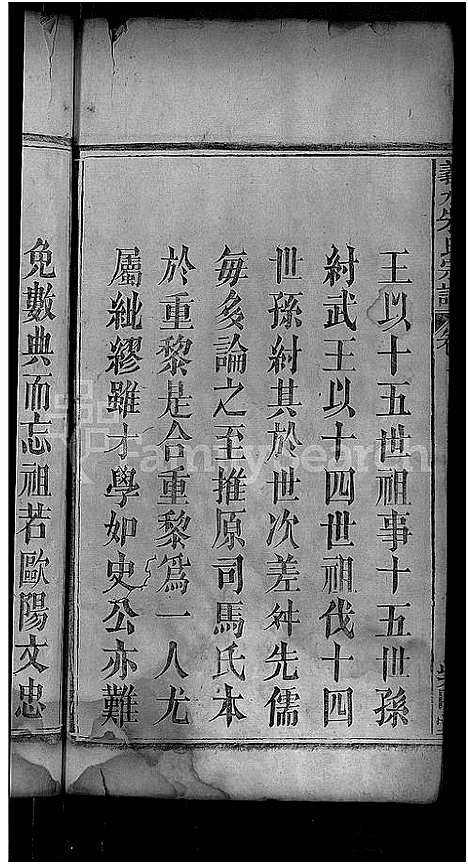 王以十五世祖事十五世孫
紂武王以十四世祖伐十四
世孫紂其於世次差舛先儒
每多論之至推原司馬氏本
於重黎是合重黎為一人尤
屬紕繆雖才學如史公亦難
免數典而忘祖若歐陽文忠
FamilySearch